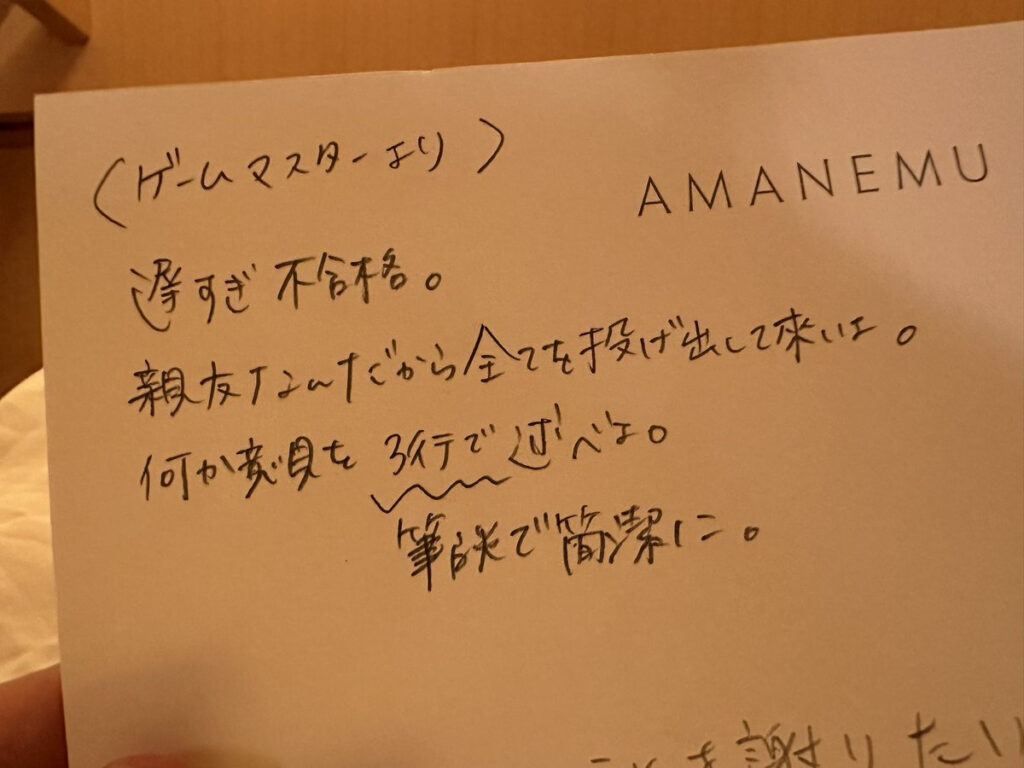 (ゲームマスターより)
AMANEMU
遅すぎ不合格。
親友なんだから全てを投げ出して来いよ。
何か意見を3行で述べよ。
筆談で簡潔に。
謝りたい